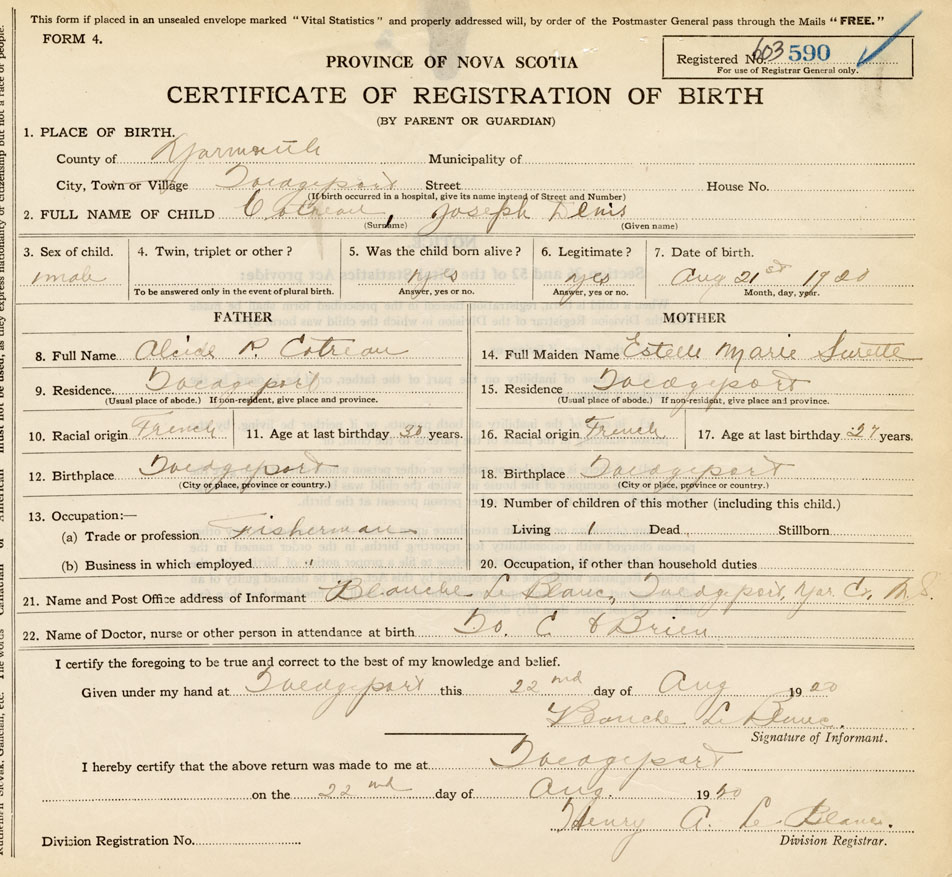 This form if placed in an unsealed envelope marked "Vital Statistics" and properly addressed will, by order of the Postmaster General pass through the Mails "FREE."
FORM 4.
Registered No. 603 590
For use of Registrar General only.
PROVINCE OF NOVA SCOTIA
CERTIFICATE OF REGISTRATION OF BIRTH
(BY PARENT OR GUARDIAN)
1. PLACE OF BIRTH.
County of Yarmouth Municipality of
City, Town or Village Wedgeport Street House No.
(If birth occurred in a hospital, give its name instead of Street and Number)
2. FULL NAME OF CHILD Cotreau, Joseph Denis
(Surname) (Given name)
3. Sex of child. 4. Twin, triplet or other? 5. Was the child born alive? 6. Legitimate? 7. Date of birth.
male yes yes Aug 21st 1920
To be answered only in the event of plural birth. Answer, yes or no. Answer, yes or no. Month, day, year.
FATHER MOTHER
8. Full Name Alcide P. Cotreau 14. Full Maiden Name Estelle Marie Surette
9. Residence. Wedgeport 15. Residence Wedgeport
(Usual place of abode.) If non-resident, give place and province. (Usual place of abode.) If non-resident, give place and province.
10. Racial origin French 11. Age at last birthday years. 16. Racial origin French 17. Age at last birthday 27 years.
12. Birthplace Wedgeport 18. Birthplace Wedgeport
(City or place, province or country.) (City or place, province or country.)
13. Occupation:— 19. Number of children of this mother (including this child.)
(a) Trade or profession Fisherman Living 1 Dead Stillborn
(b) Business in which employed " 20. Occupation, if other than household duties
21. Name and Post Office address of Informant Blanche Le Blanc, Wedgeport, Yar. Co, N.S.
22. Name of Doctor, nurse or other person in attendance at birth C O'Brien
I certify the foregoing to be true and correct to the best of my knowledge and belief.
Given under my hand at Wedgeport this 22nd day of Aug 1920
Blanche Le Blanc.
Signature of Informant.
I hereby certify that the above return was made to me at Wedgeport
on the 22nd day of Aug. 1920
Henry A. Le Blanc.
Division Registration No. Division Registrar.